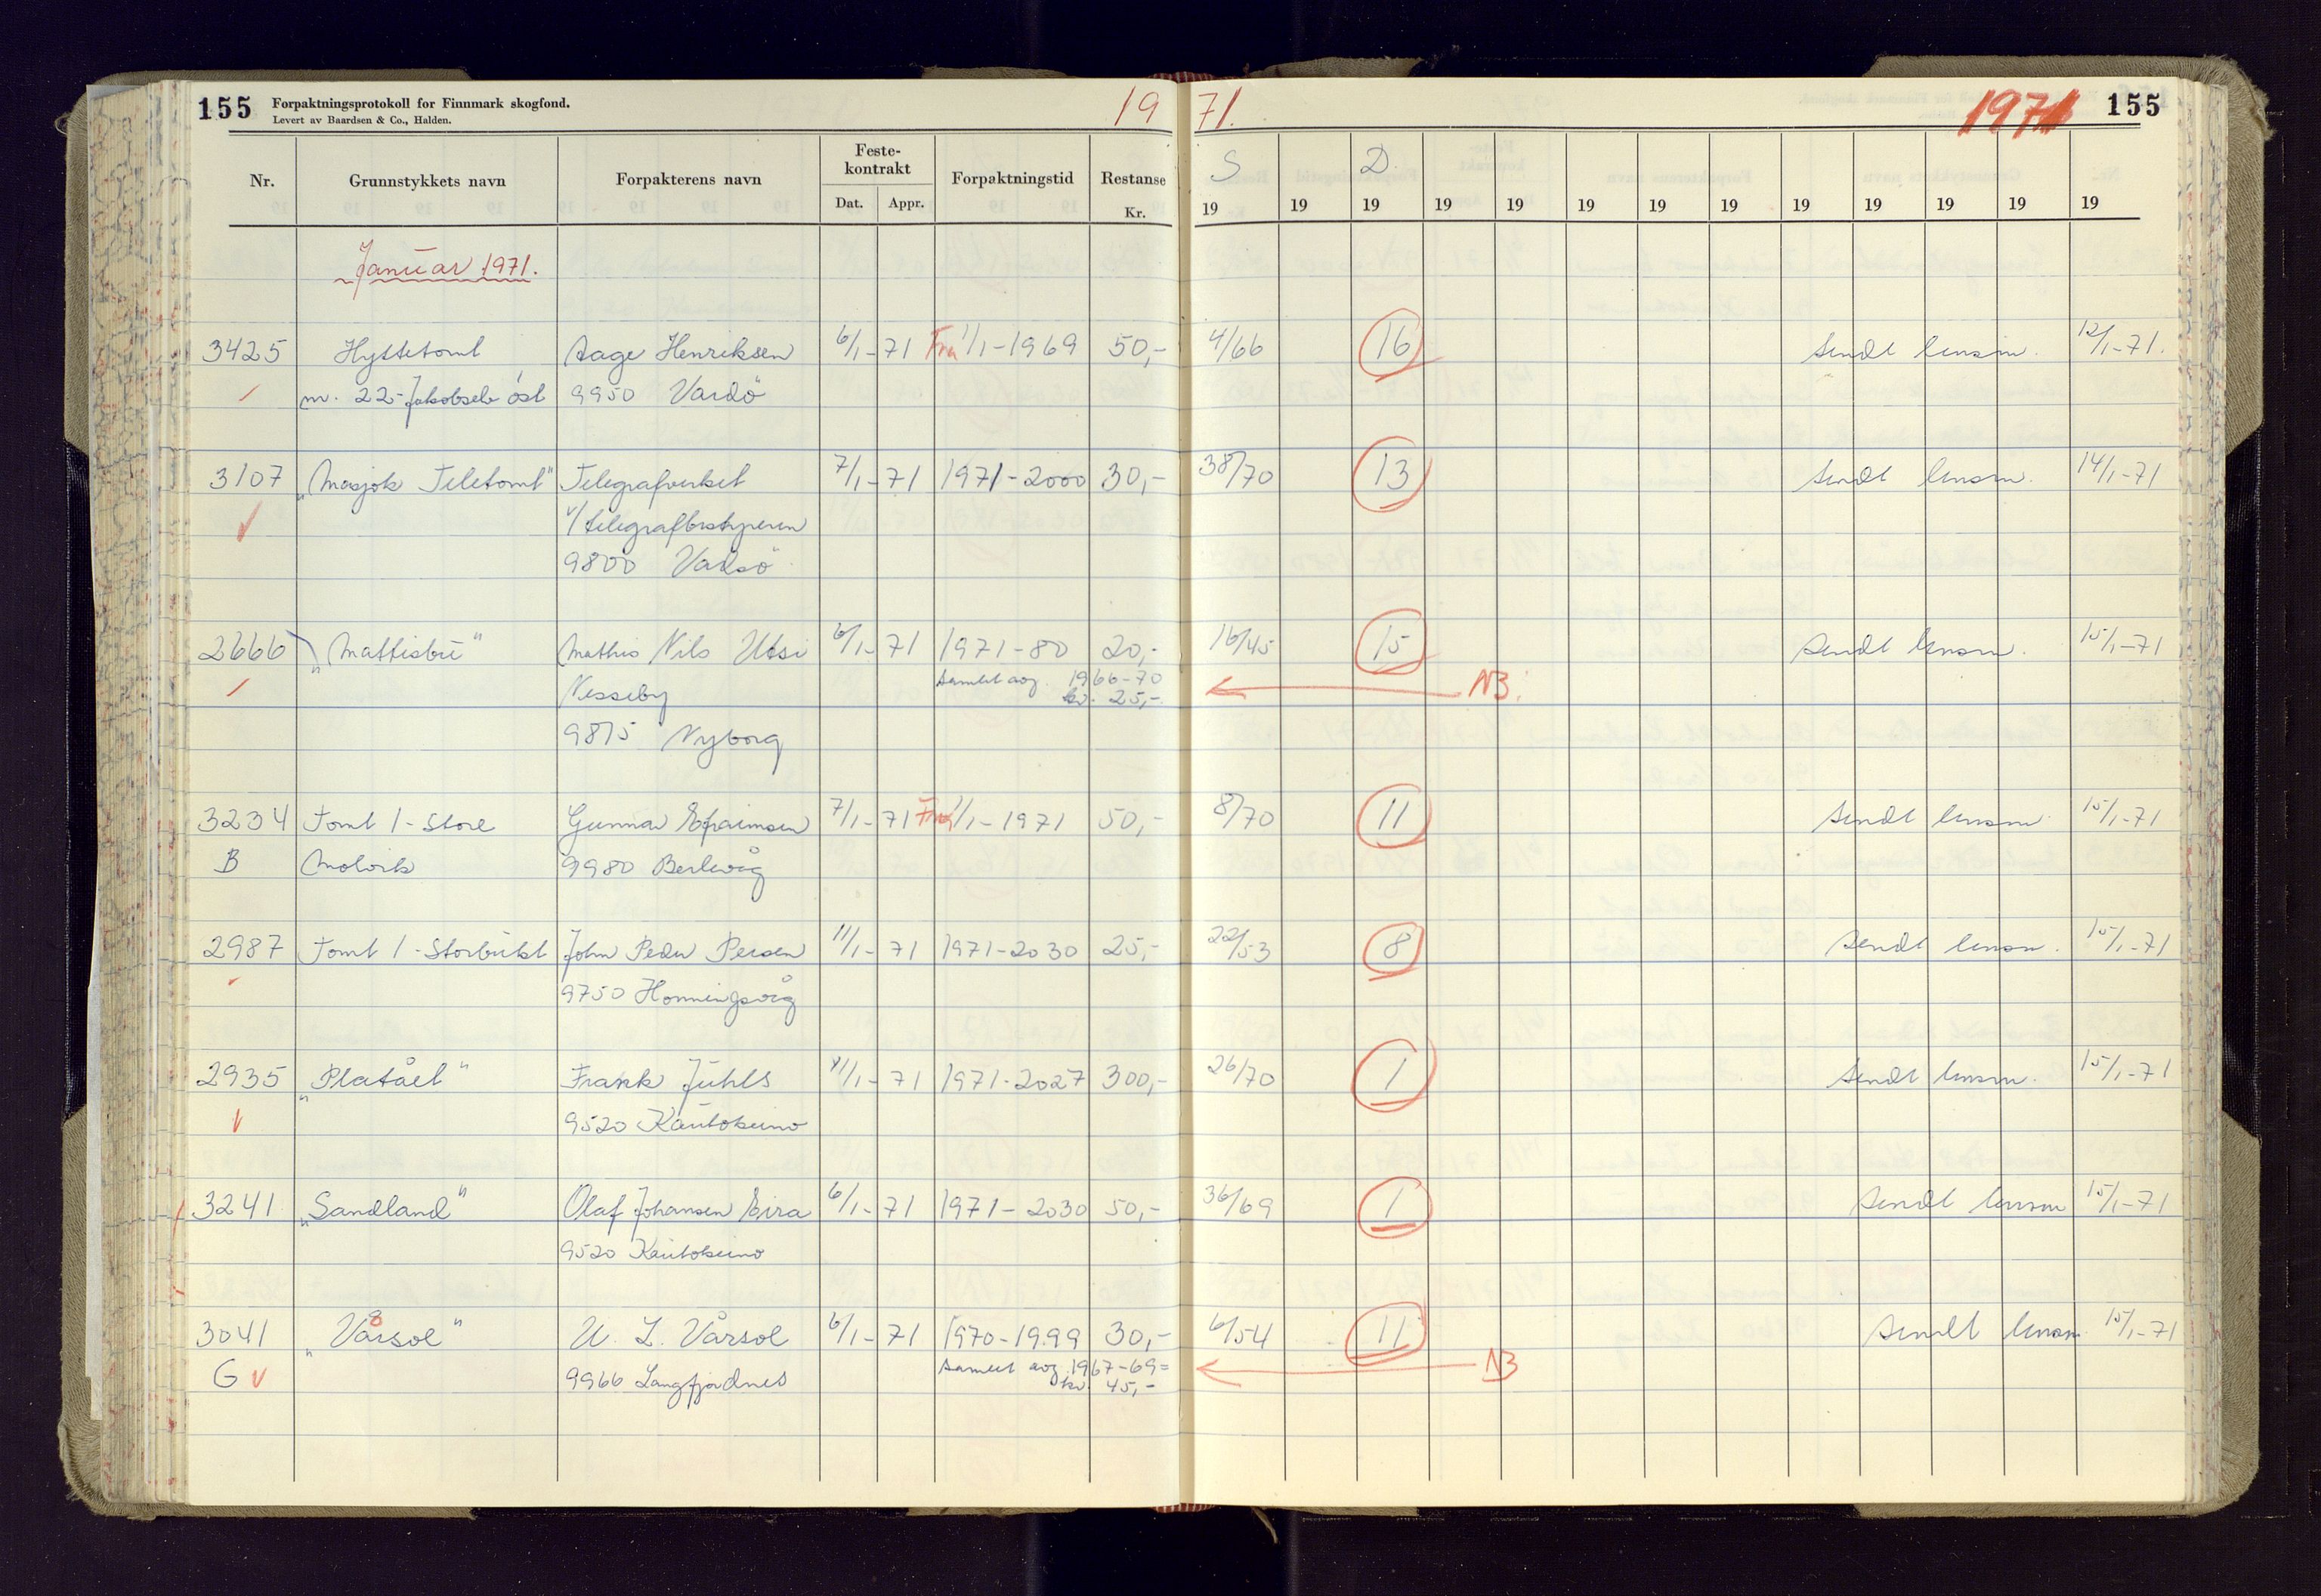 155 Forpaktningsprotokoll for Finnmark skogfond. 19 71. 1971 155
Levert av Baardsen & Co., Halden.
Nr. Grunnstykkets navn Forpakterens navn Feste-kontrakt Dat. Appr. Forpaktningstid Restanse Kr. S D.
19 19 19 19 19 19 19 19 19 19 19 19 19
Januar 1971.
3425 Hyttetomt Aage Henriksen 6/1- 71 Fra 1/1-1969 50,- 4/66 16 Sendt lensm. 12/1-71.
nr. 22-Jakobselv öst 9950 Vardö
3107 "Masjok Teletomt" Telegrafverket 7/1- 71 1971-2000 30,- 38/70 13 Sendt lensm. 14/1-71
v/telegrafbestyreren
9800 Vadsö
2666 "Mattisbu" Mathis Nils Utsi 6/1- 71 1971-80 20,- 16/45 15 Sendt lensm. 15/1-71
Samlet avg. 1966-70 NB.
Nesseby kr. 25,-
9875 Nyborg
3234 Tomt 1-Store Gunnar Efraimsen 7/1- 71 Fra 1/1-1971 50,- 8/70 11 Sendt lensm. 15/1-71
B Molvik 9980 Berlevåg
2987 Tomt 1-Storbukt John Peder Persen 11/1- 71 1971-2030 25,- 22/53 8 Sendt lensm. 15/1-71
9750 Honningsvåg
2935 "Platået" Frank Juhls 11/1- 71 1971-2027 300,- 26/70 1 Sendt lensm. 15/1-71
9520 Kautokeino
3241 "Sandland" Olaf Johansen Eira 6/1- 71 1971-2030 50,- 36/69 1 Sendt lensm 15/1-71
9520 Kautokeino
3041 "Vårsol" U. L. Vårsol 6/1- 71 1970-1999 30,- 6/54 11 Sendt lensm. 15/1-71
Samlet avg. 1967-69= NB
G 9966 Langfjordnes kr. 45,-